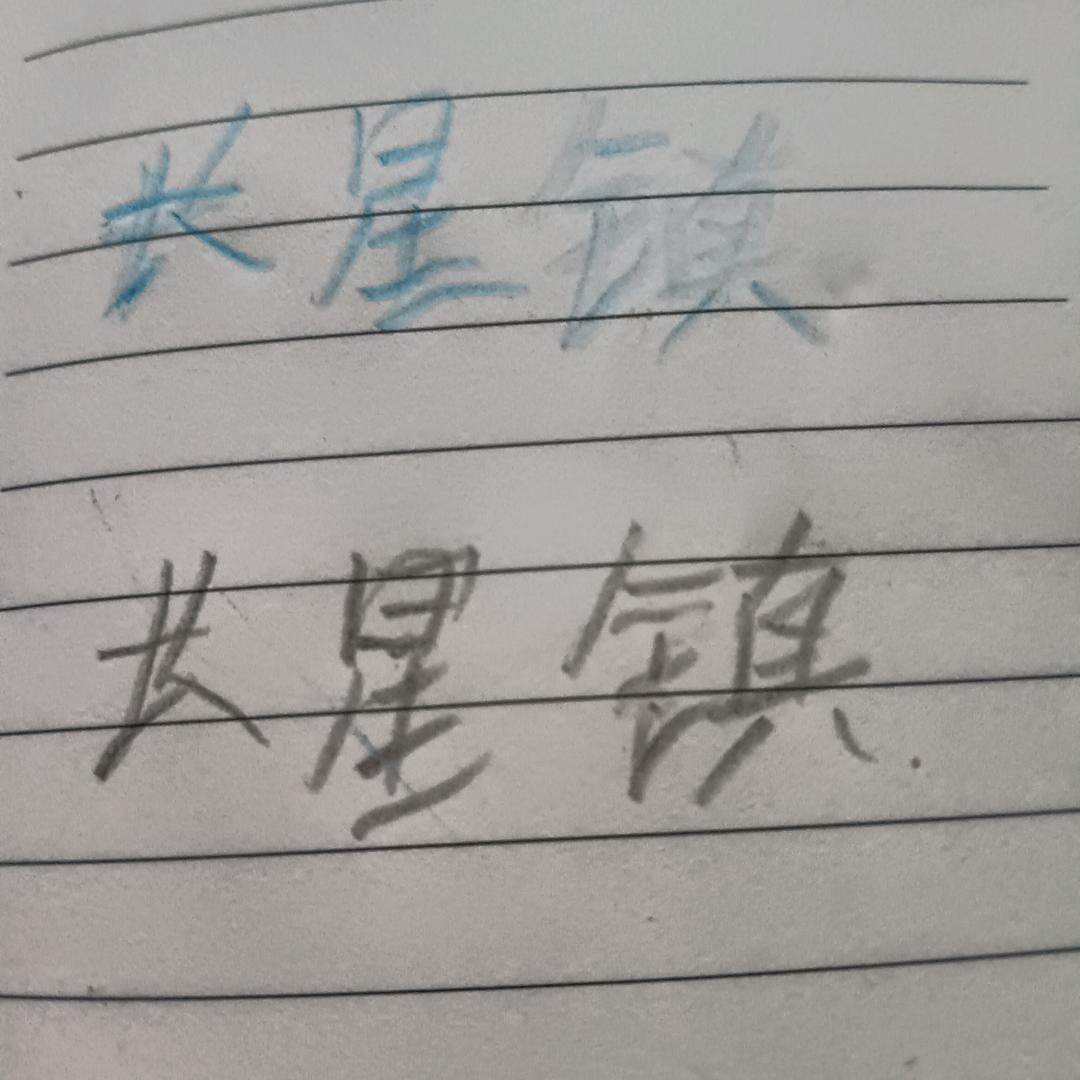 长星镇
长星镇.